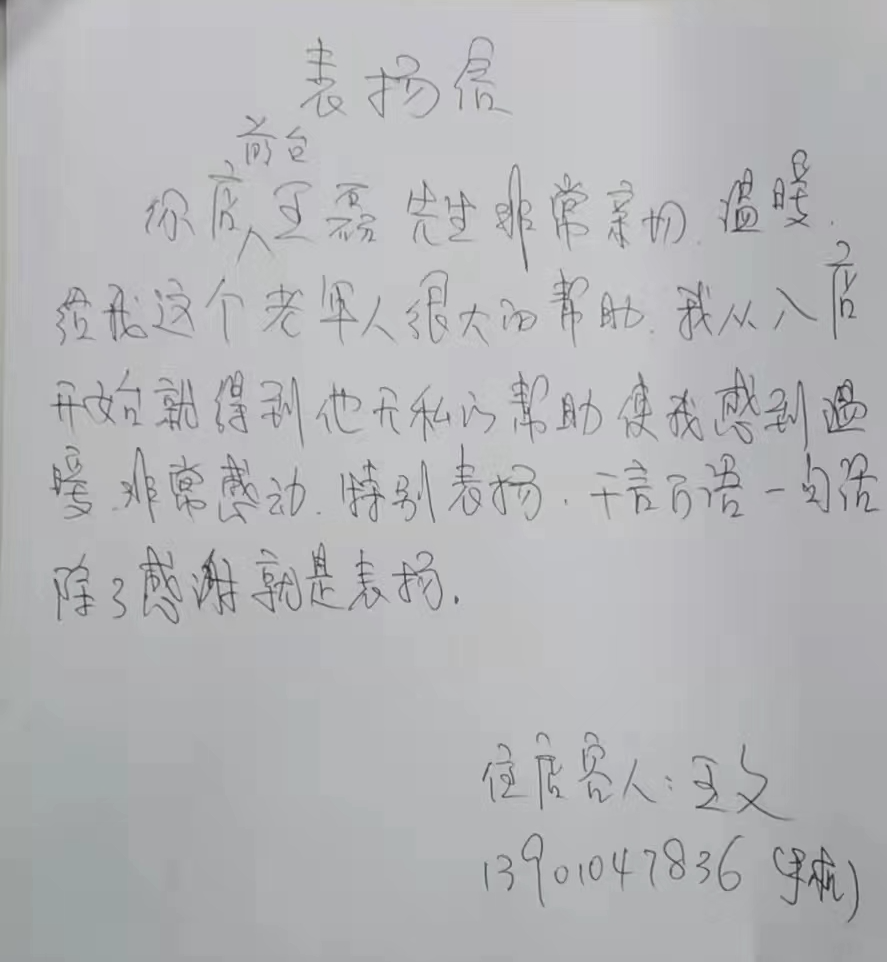 表扬信
前台
你店王磊先生非常亲切.温暖.
给我这个老军人很大的帮助.我从入店
开始就得到他无私的帮助使我感到温
暖.非常感动.特别表扬.千言万语一句话
除了感谢就是表扬.
住店客人:王文
13901047836(手机)